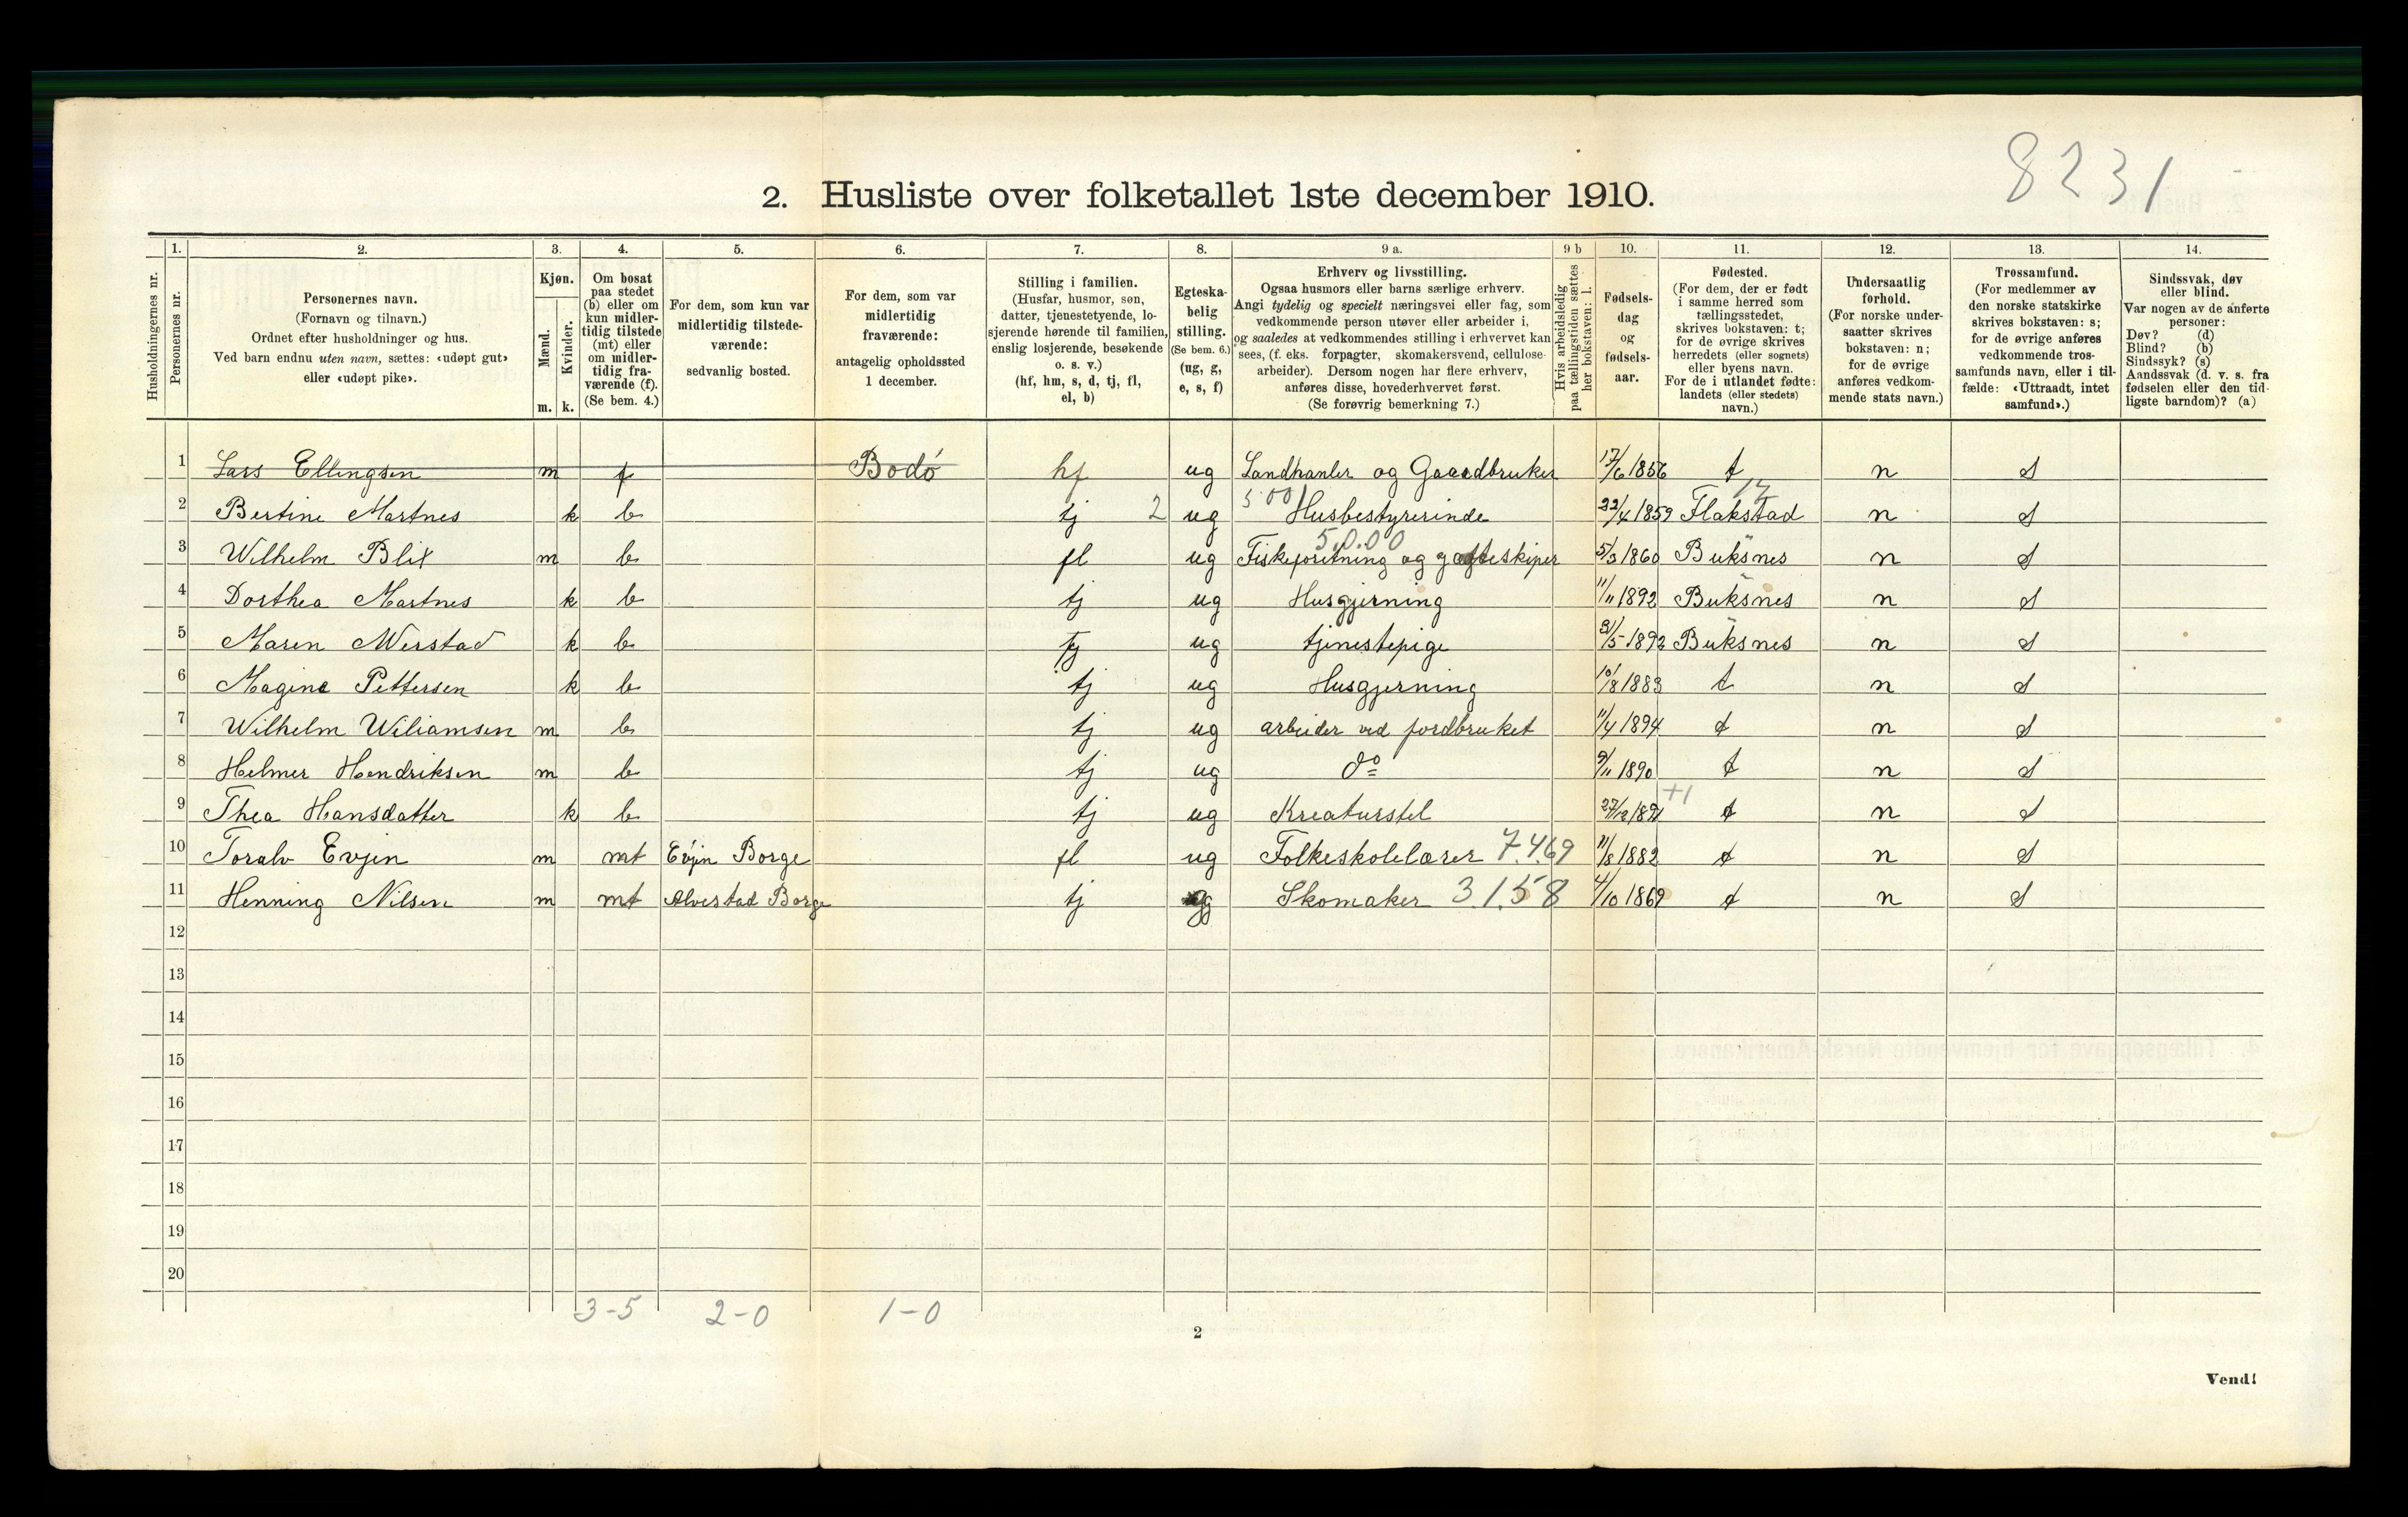 8231
2. Husliste over folketallet 1ste december 1910.
Husholdningernes nr.
1. Personernes nr.
2. Personernes navn. (Fornavn og tilnavn.) Ordnet efter husholdninger og hus. Ved barn endnu uten navn, sættes: «udøpt gut» eller «udøpt pike».
3. Kjøn. Mænd. m. Kvinder. k.
4. Om bosat paa stedet (b) eller om kun midler-tidig tilstede (mt) eller om midler-tidig fra-værende (f). (Se bem. 4.)
5. For dem, som kun var midlertidig tilstede-værende: sedvanlig bosted.
6. For dem, som var midlertidig fraværende: antagelig opholdssted 1 december.
7. Stilling i familien. (Husfar, husmor, søn, datter, tjenestetyende, lo-sjerende hørende til familien, enslig losjerende, besøkende o. s. v.) (hf, hm, s, d, tj, fl, el, b)
8. Egteska-belig stilling. (Se bem. 6.) (ug, g, e, s, f)
9 a. Erhverv og livsstilling. Ogsaa husmors eller barns særlige erhverv. Angi tydelig og specielt næringsvei eller fag, som vedkommende person utøver eller arbeider i, og saaledes at vedkommendes stilling i erhvervet kan sees, (f. eks. forpagter, skomakersvend, cellulose-arbeider). Dersom nogen har flere erhverv, anføres disse, hovederhvervet først. (Se forøvrig bemerkning 7.)
9 b Hvis arbeidsledig paa tællingstiden sættes her bokstaven: l.
10. Fødsels-dag og fødsels-aar.
11. Fødested. (For dem, der er født i samme herred som tællingsstedet, skrives bokstaven: t; for de øvrige skrives herredets (eller sognets) eller byens navn. For de i utlandet fødte: landets (eller stedets) navn.)
12. Undersaatlig forhold. (For norske under-saatter skrives bokstaven: n; for de øvrige anføres vedkom-mende stats navn.)
13. Trossamfund. (For medlemmer av den norske statskirke skrives bokstaven: s; for de øvrige anføres vedkommende tros-samfunds navn, eller i til-fælde: «Uttraadt, intet samfund».)
14. Sindssvak, døv eller blind. Var nogen av de anførte personer: Døv? (d) Blind? (b) Sindssyk? (s) Aandssvak (d. v. s. fra fødselen eller den tid-ligste barndom)? (a)
1 Lars Ellingsen m f Bodó hf ug Landhanler og Gaardbruker 17/6 1856 t n S
17
2 Bertine Martnes k b tj 2 ug 500/ Husbestyrerinde 22/4 1859 Flakstad n S
5.0.00
3 Wilhelm Blix m b fl ug Fiskeforretning og 5/3 1860 Buksnes n S
4 Dorthea Martnes k b tj ug Husgjerning 11/11 1892 Buksnes n S
5 Maren Nerstad k b tj ug tjenestepige 21/5 1892 Buksnes n S
6 Magina Pettersen k b tj ug Husgjerning 10/8 1883 t n S
7 Wilhelm Wiliamsen m b tj ug arbeider ved jordbruket 11/4 1894 t n S
8 Helmer Hendriksen m b tj ug do 9/11 1890 t n S
+1
9 Thea Hansdatter k b tj ug Kreaturstel 27/12 t n S
10 Toralv Evjen m mt Evjen Borge fl ug Folkeskolelærer 7.4.69 11/8 1882 t n S
11 Henning Nilsen m mt Alvestad Borge tj g Skomaker 3.1.58 4/10 1869 t n S
12
13
14
15
16
17
18
19
20
3-5 2-0 1-0
2
Vend!